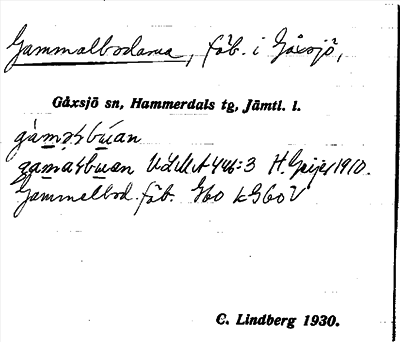 Gammalbodarna, fäb. i Gåxsjö,
Gåxsjö sn, Hammerdals tg, Jämtl. l.
gàmaɩbúan
gamaɩbuan ULMA 446:3 H. Geijer 1910.
Gammelbod. fäb. G60 kG60V
C. Lindberg 1930.